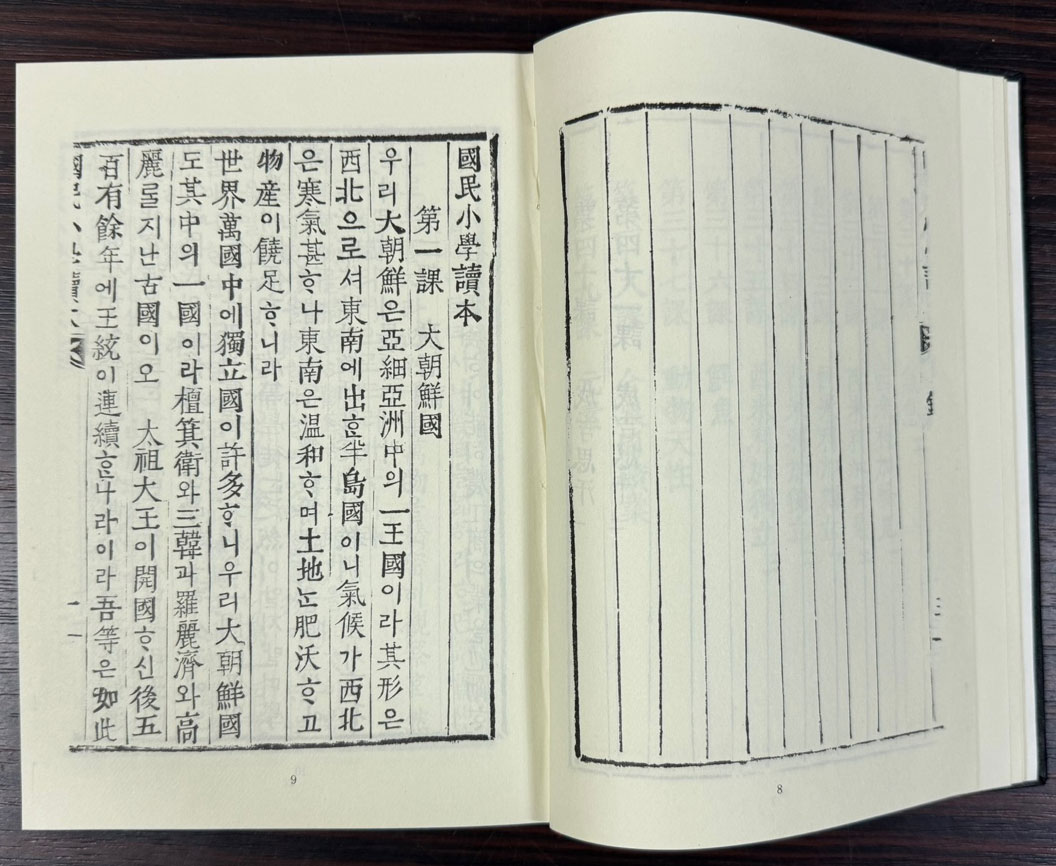 國民小學讀本
第一課 大朝鮮國
우리大朝鮮은亞細亞洲中의一王國이라其形은
西北으로셔東南에出ᄒᆞᆫ半島國이니氣候가西北
은寒氣甚ᄒᆞ나東南은温和ᄒᆞ며土地ᄂᆞᆫ肥沃ᄒᆞ고
物産이饒足ᄒᆞ니라
世界萬國中에獨立國이許多ᄒᆞ니우리大朝鮮國
도其中의一國이라檀箕衛와三韓과羅麗濟와高
麗ᄅᆞᆯ지난古國이오 太祖大王이開國ᄒᆞ신後五
百有餘年에王統이連續ᄒᆞᆫ나라이라吾等은如此
一
8
9